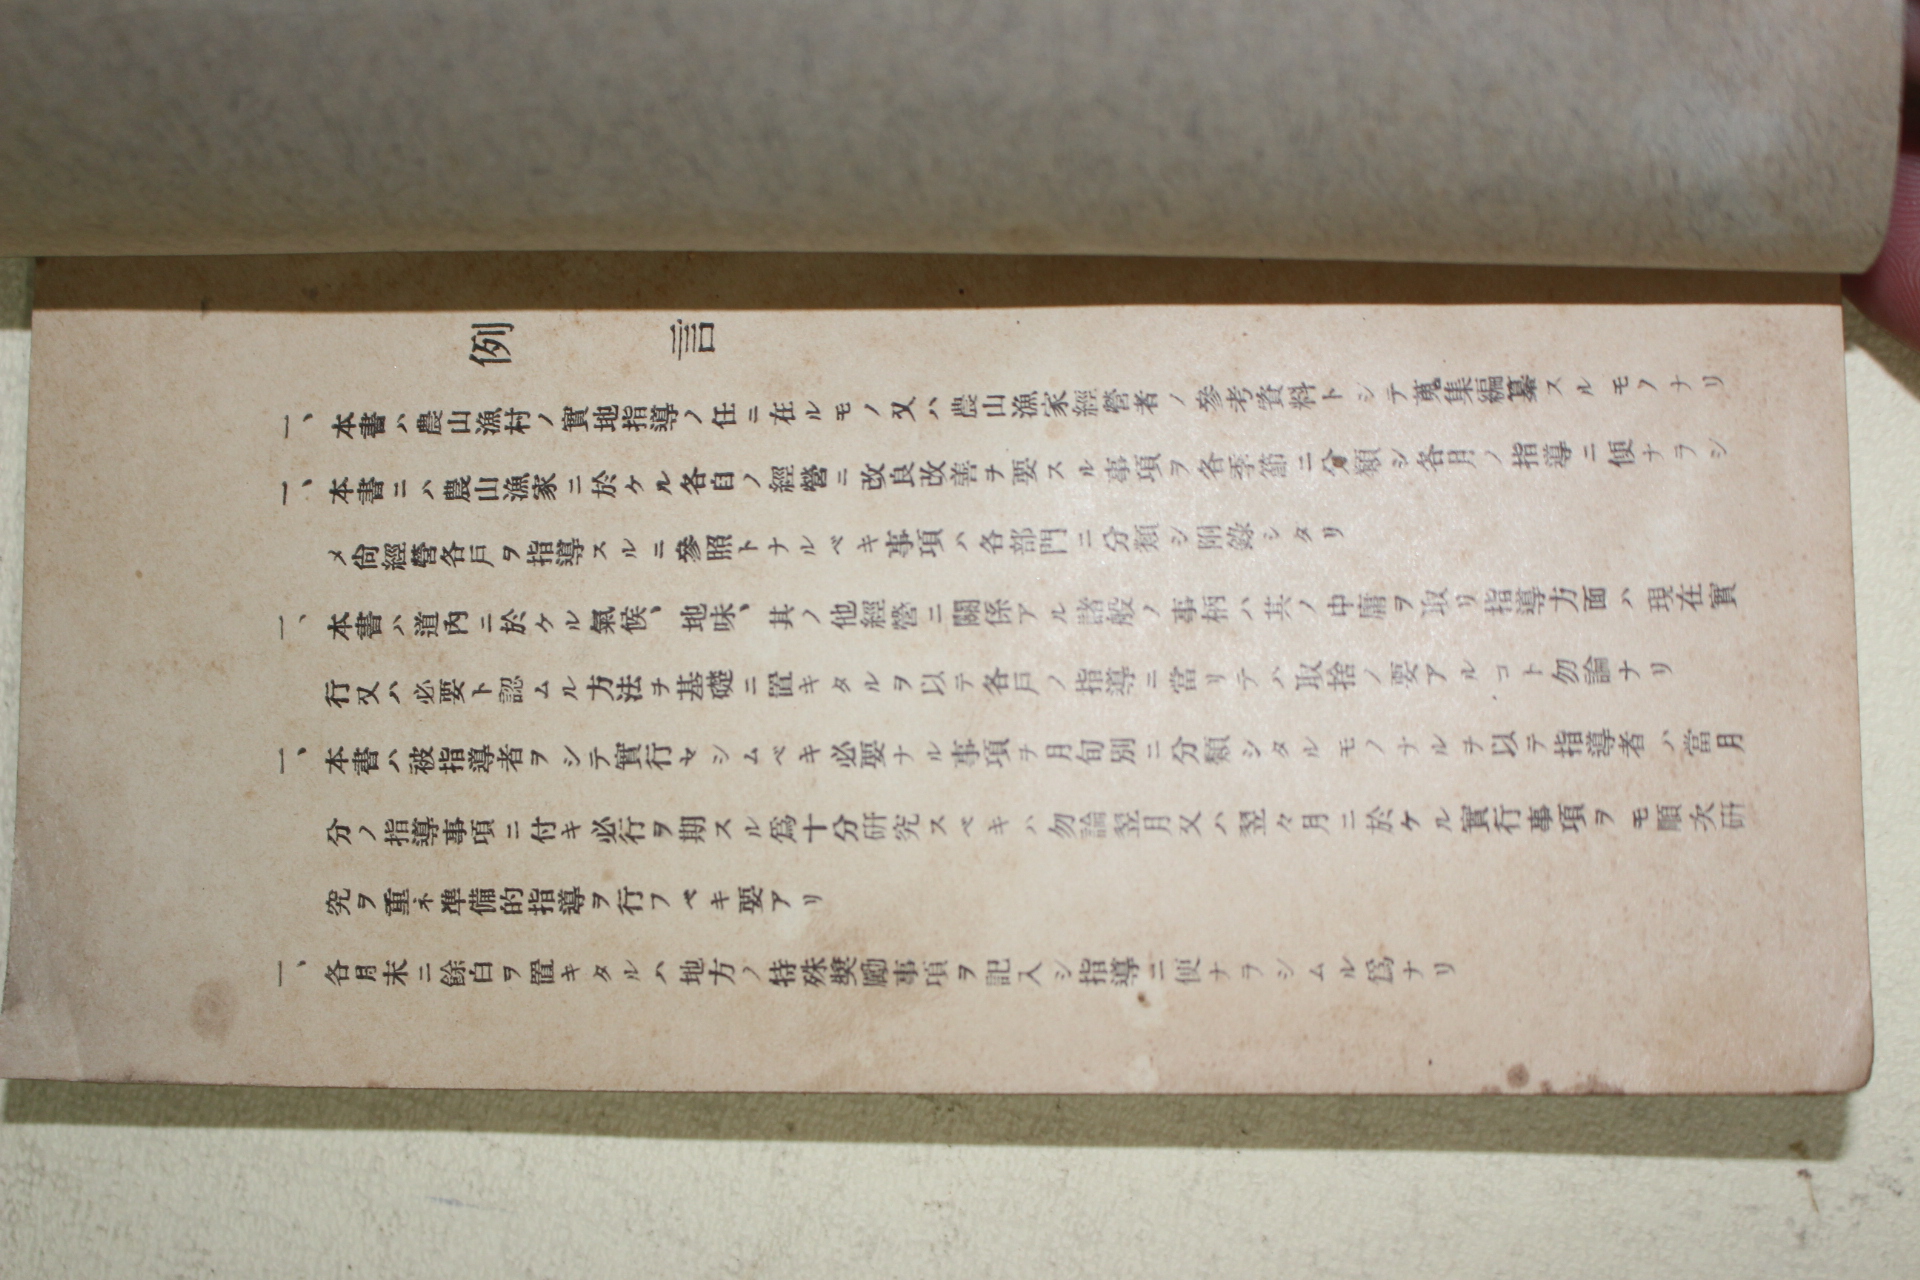 例言
一、本書ハ農山漁村ノ實地指導ノ任ニ在ルモノ又ハ農山漁家經營者ノ參考資料トシテ蒐集編纂スルモノナリ
一、本書ニハ農山漁家ニ於ケル各自ノ經營ニ改良改善ヲ要スル事項ヲ各季節ニ分類シ各月ノ指導ニ便ナラシ
メ尙經營各戸ヲ指導スルニ參照トナルベキ事項ハ各部門ニ分類シ附錄シタリ
一、本書ハ道內ニ於ケル氣候、地味、其ノ他經營ニ關係アル諸般ノ事柄ハ其ノ中庸ヲ取リ指導方面ハ現在實
行又ハ必要ト認ムル方法ヲ基礎ニ置キタルヲ以テ各戸ノ指導ニ當リテハ取捨ノ要アルコト勿論ナリ
一、本書ハ被指導者ヲシテ實行セシムベキ必要ナル事項ヲ月旬別ニ分類シタルモノナルヲ以テ指導者ハ當月
分ノ指導事項ニ付キ必行ヲ期スル爲十分硏究スベキハ勿論翌月又ハ翌々月ニ於ケル實行事項ヲモ順次硏
究ヲ重ネ準備的指導ヲ行フベキ要アリ
一、各月末ニ餘白ヲ置キタルハ地方ノ特殊奬勵事項ヲ記入シ指導ニ便ナラシムル爲ナリ